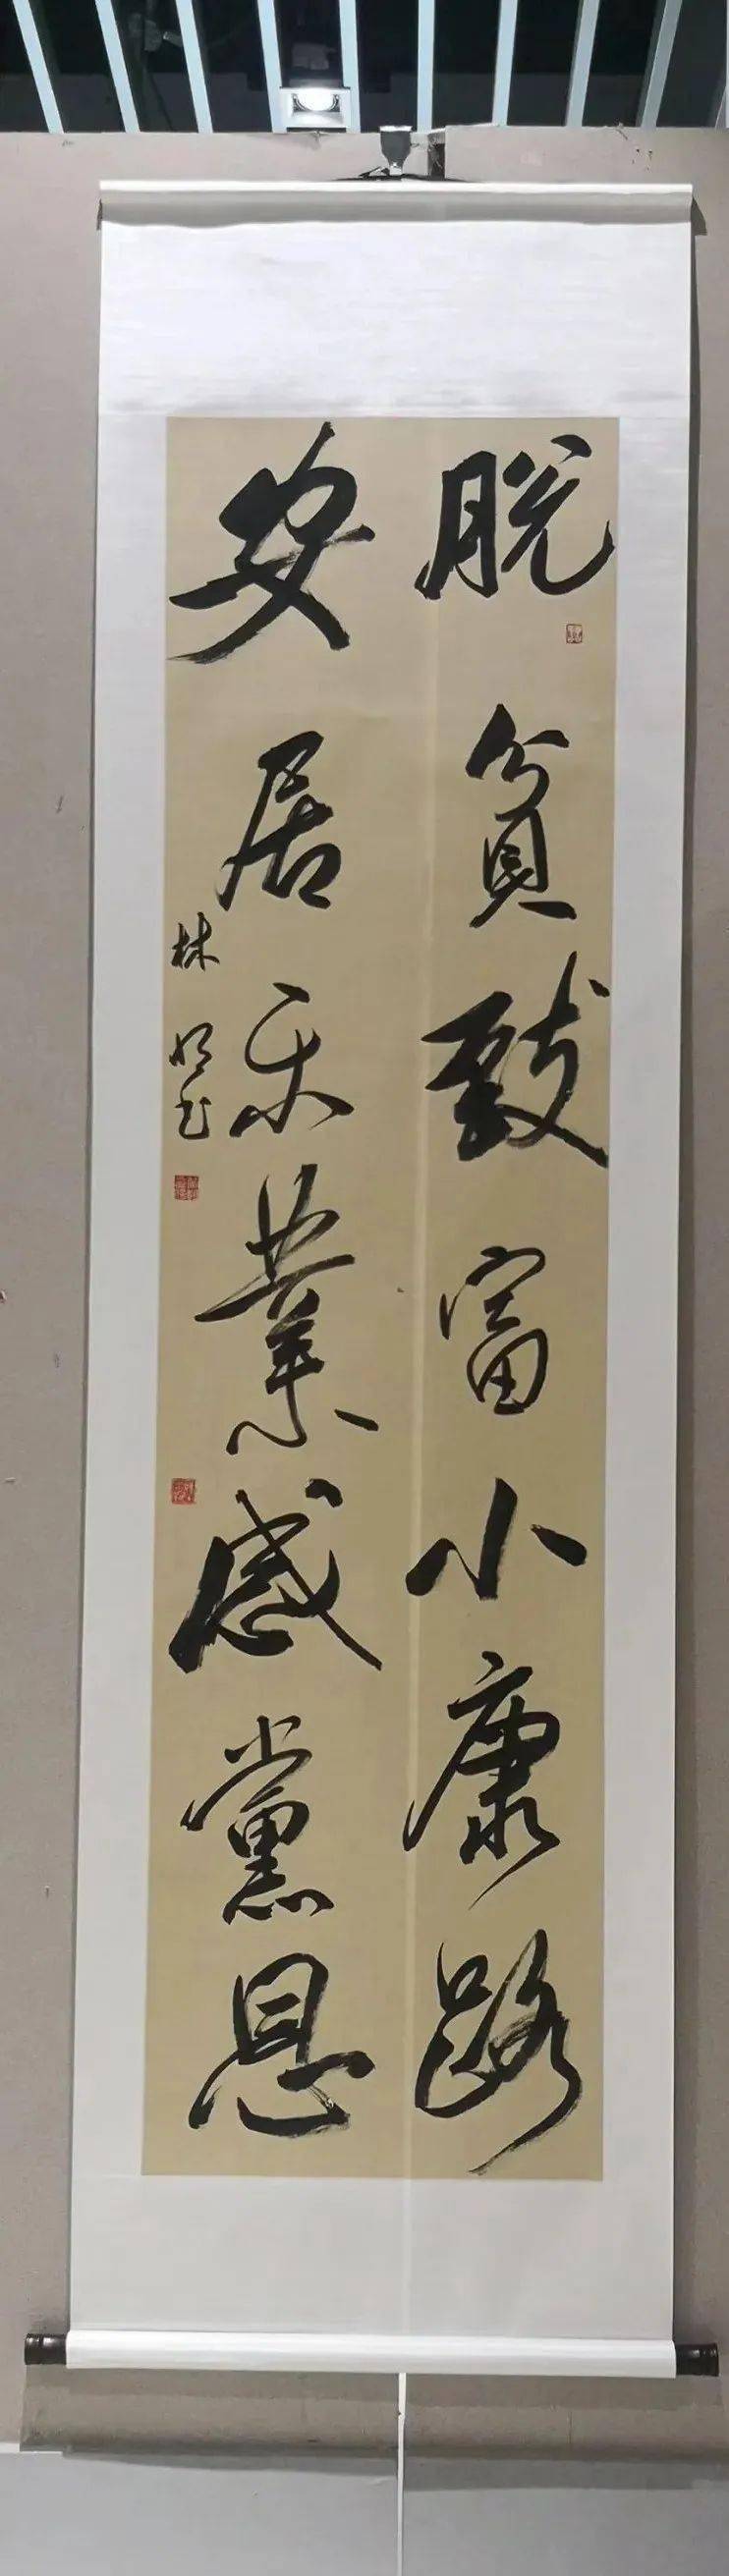 脱貧致富小康路
安居乐業感黨恩
林